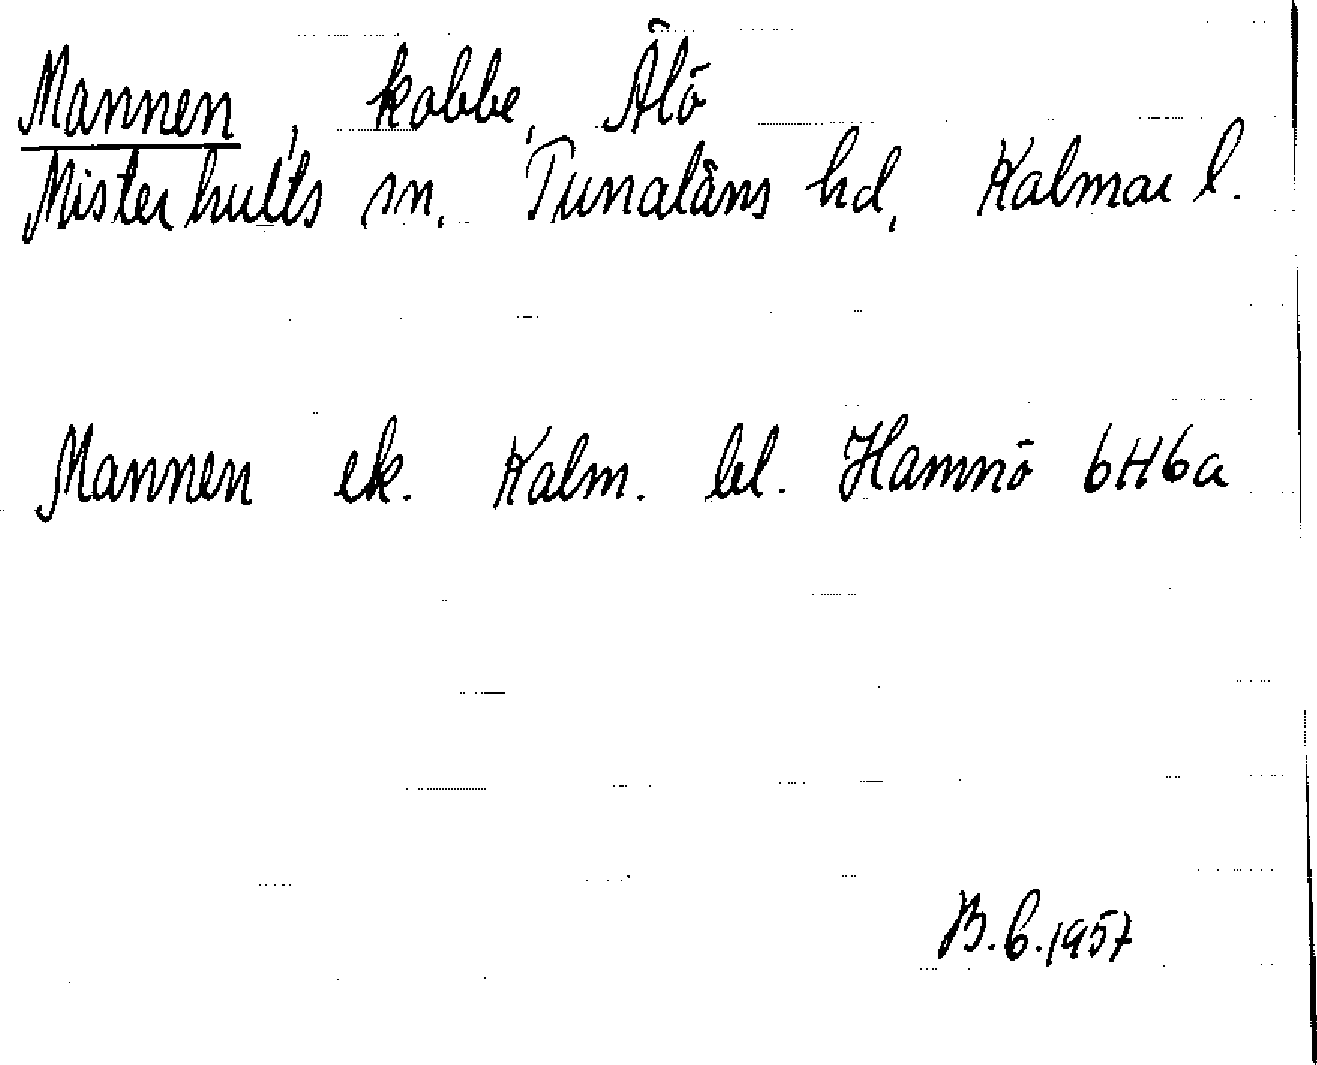 Mannen, kobbe, Älö
Misterhults sn, Tunaläns hd, Kalmar l.
Mannen ek. Kalm. bl. Hamnö 6H6a
B.C.1957